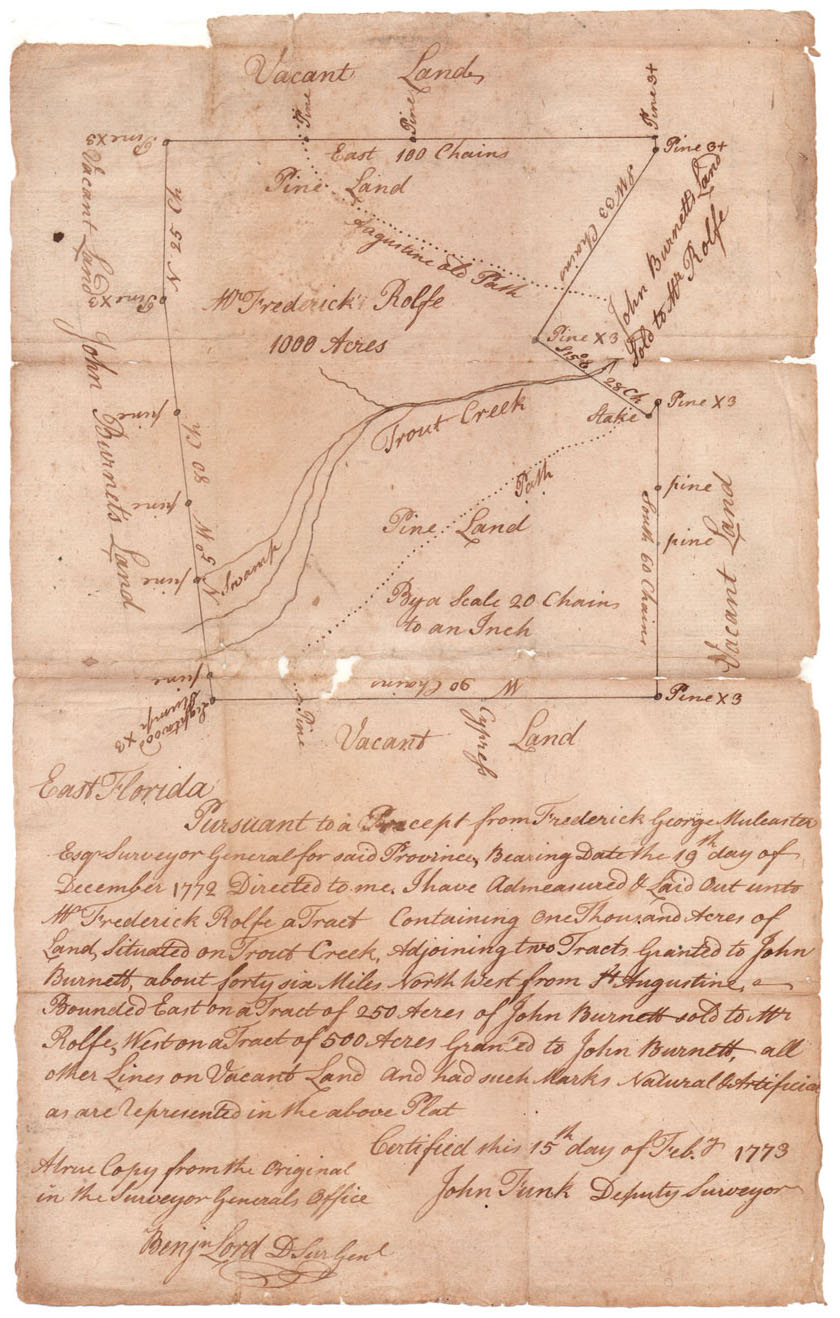 Vacant Land
Pine
Pine
Pine 3+
Pine X3
East 100 Chains
Pine 3+
Vacant Land
N 25 Ch
Pine Land
SW 33 Chains
Augustine old Path
John Burnetts Land
Sold to Mr Rolfe
Pine X3
Mr Frederick Rolfe
1000 Acres
Pine X3
S 15° E 28 Ch
John Burnets Land
Trout Creek
Stake
Pine X3
pine
N 5° W 80 Ch
pine
Path
pine
South 60 Chains
pine
Vacant Land
Pine Land
pine
Swamp
By a Scale 20 Chains
to an Inch
pine
W 90 Chains
Pine X3
Lightwood
Stump X3
Pine
Cypress
Vacant Land
East Florida
Pursuant to a Precept from Frederick George Mulcaster
Esqr Surveyor General for said Province, Bearing Date the 19th day of
December 1772 Directed to me. I have Admeasured & Laid Out unto
Mr Frederick Rolfe a Tract Containing One Thousand Acres of
Land, Situated on Trout Creek, Adjoining two Tracts Granted to John
Burnett, about forty six Miles North West from St Augustine,
Bounded East on a Tract of 250 Acres of John Burnett sold to Mr
Rolfe, West on a Tract of 500 Acres Granted to John Burnett, all
other Lines on Vacant Land And had such Marks Natural & Artificial
as are represented in the above Plat
Certified this 15th day of Feb.y 1773
John Funk Deputy Surveyor
A true Copy from the Original
in the Surveyor Generals Office
Benjn Lord D Sur Genl